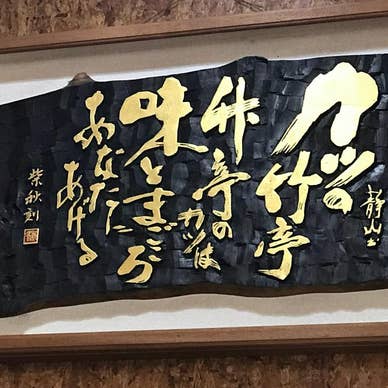 カツの
竹亭
静山
竹亭の
カツは
味とまごころ
あなたに
あげる
柴秋刻